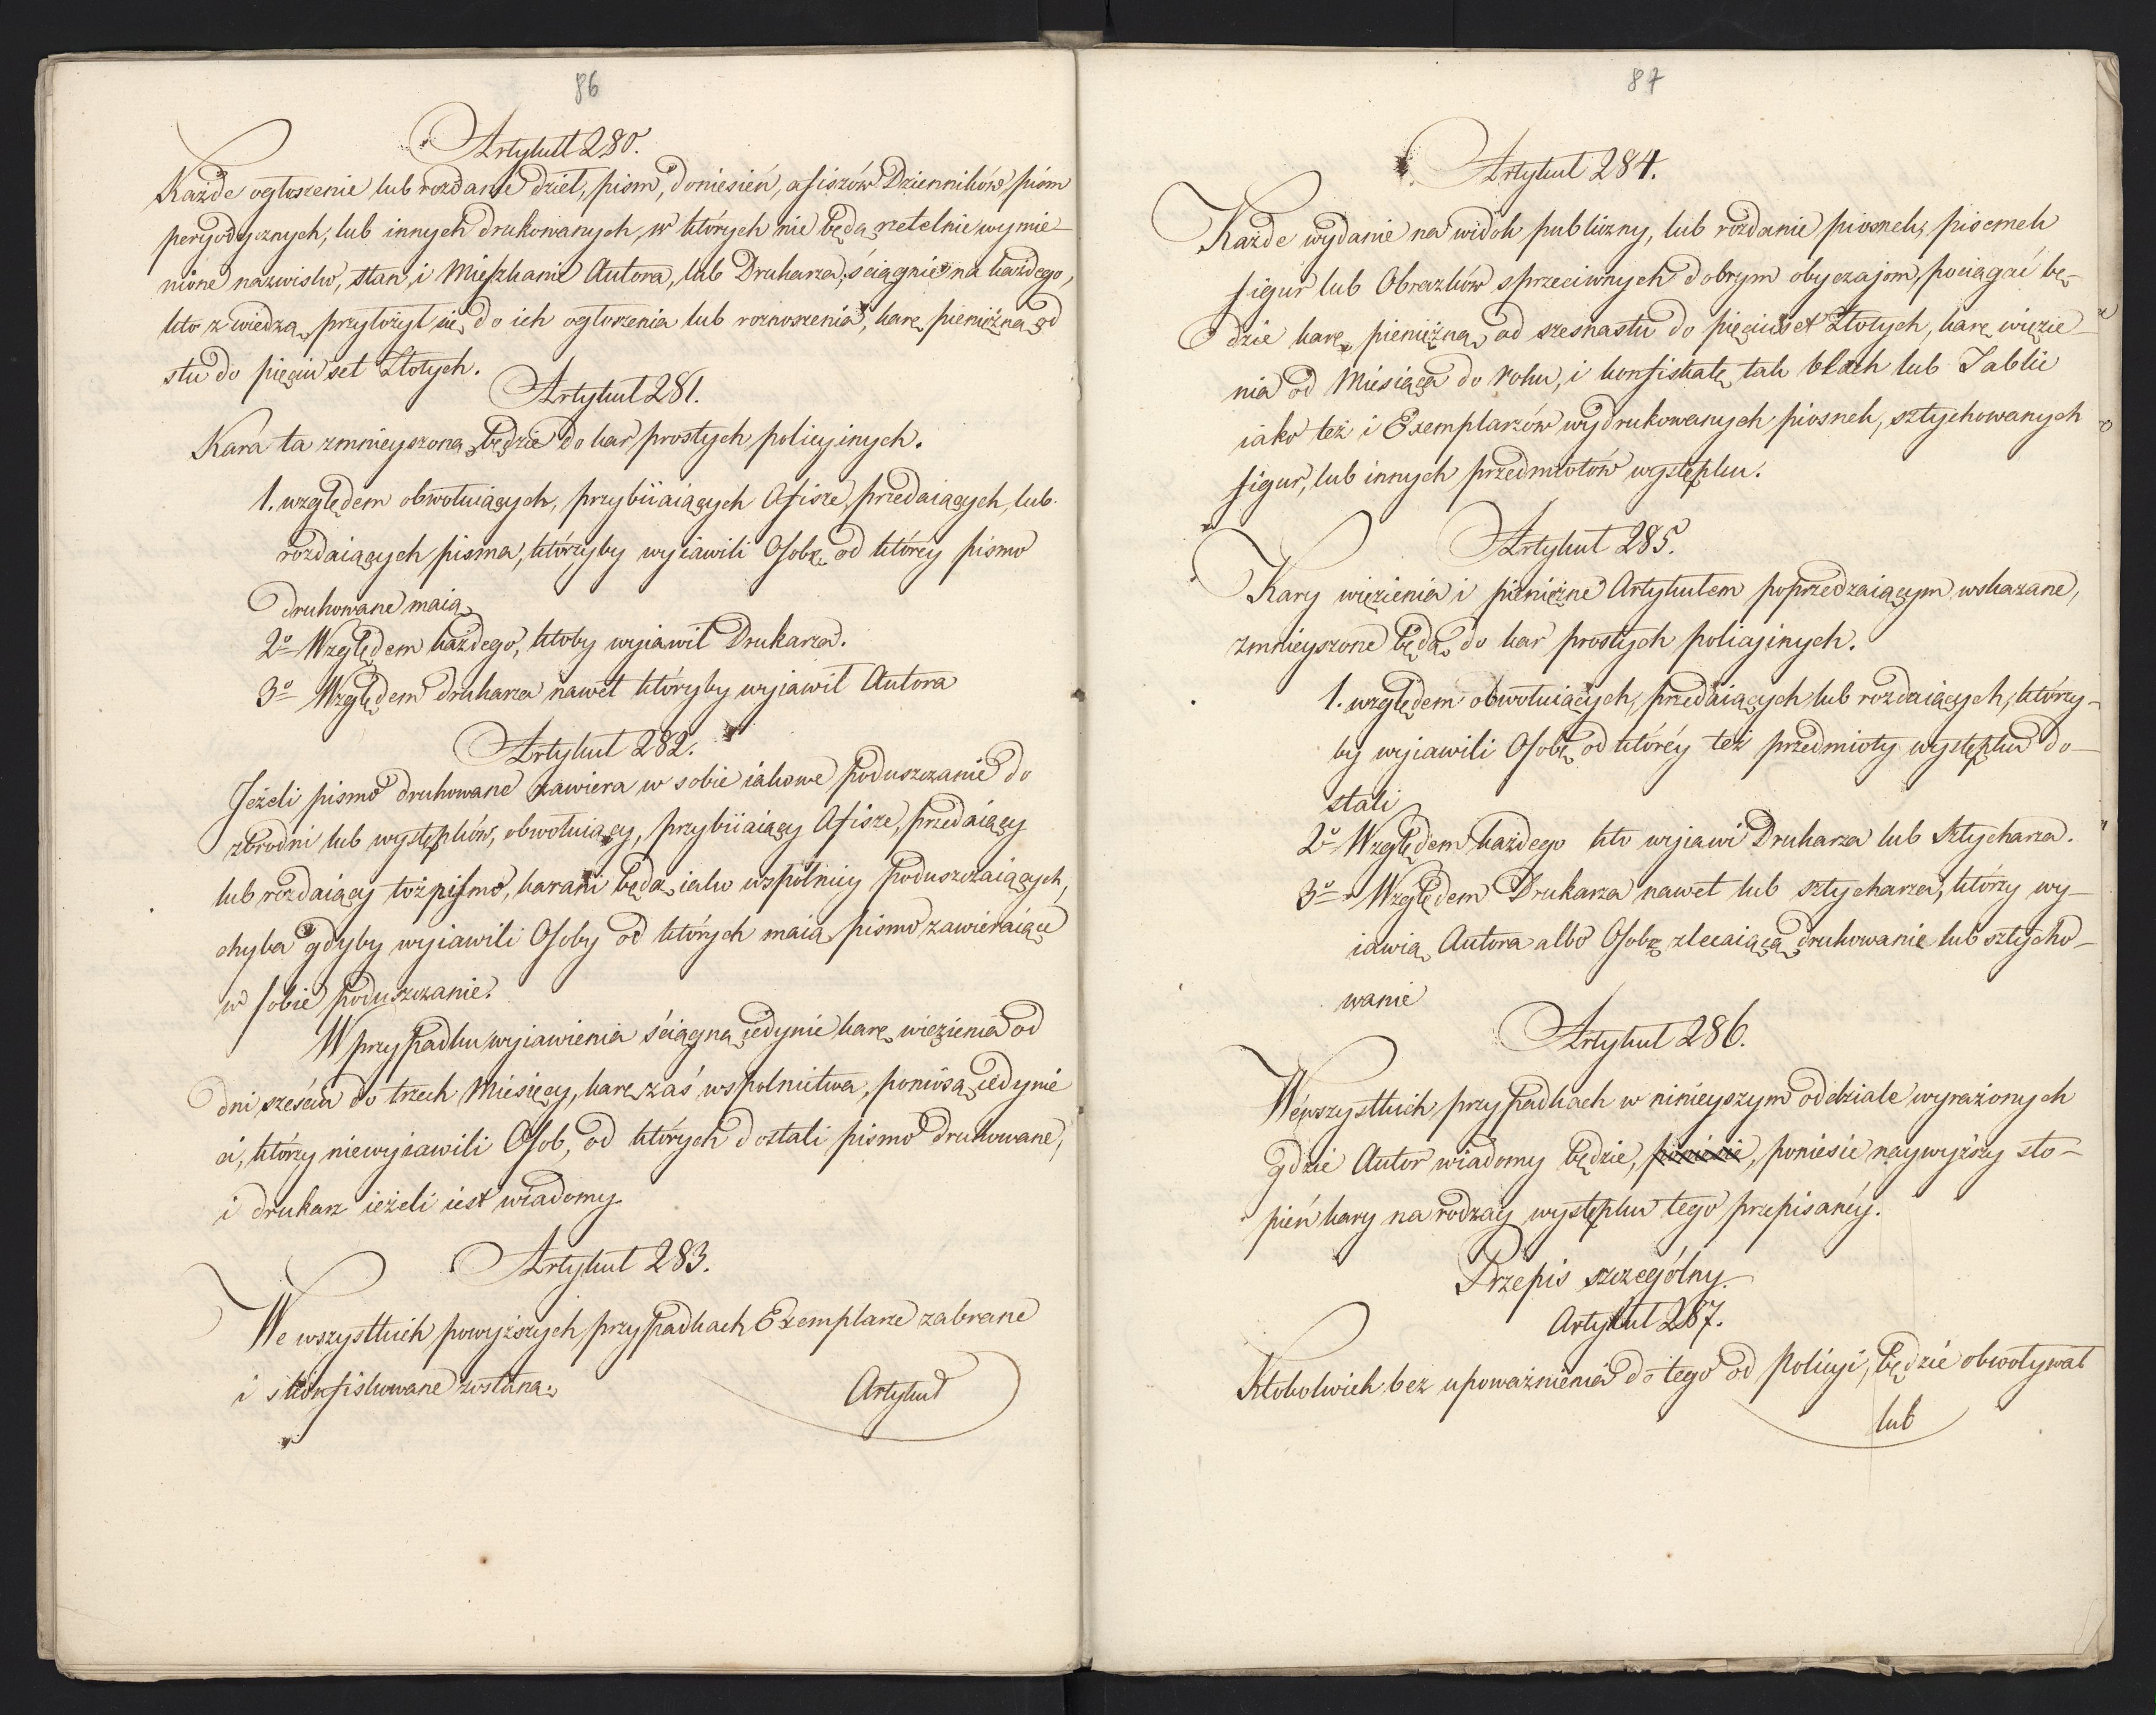 86
Artykuł 280.
Każde ogłoszenie lub rozdanie dzieł, pism, doniesień, afiszów Dzienników pism
peryodycznych, lub innych drukowanych, w których nie będą rzetelnie wymie-
nione nazwisko, stan, i Mieszkanie Autora, lub Drukarza, ściągnie na każdego,
kto z wiedzą przyłożył się do ich ogłoszenia lub roznoszenia, karę pieniężną od
stu do pięciu set Złotych.
Artykuł 281.
Kara ta zmnieyszona będzie do kar prostych policyinych.
1. względem obwołuiących, przybiiaiących Afisze, przedaiących, lub
rozdaiących pisma, którzyby wyiawili Osobę od którey pismo
drukowane maią
2º Względem każdego, ktoby wyiawił Drukarza.
3º Względem drukarza nawet któryby wyiawił Autora
Artykuł 282.
Jeżeli pismo drukowane zawiera w sobie iakowe poduszczanie do
zbrodni lub występków, obwołuiący, przybiiaiący Afisze, przedaiący
lub rozdaiący toż pismo, karani będą iako wspólnicy poduszczaiących,
chyba gdyby wyiawili Osoby od których maią pismo zawieraiące
w sobie poduszczanie.
W przypadku wyiawienia ściągną iedynie karę więzienia od
dni sześciu do trzech Miesięcy, karę zaś wspolnictwa, poniosą iedynie
ci, którzy niewyiawili Osob, od których dostali pismo drukowane,
i drukarz ieżeli iest wiadomy
Artykuł 283.
We wszystkich powyższych przypadkach Exemplarze zabrane
i skonfiskowane zostaną.
Artykuł
87
Artykuł 284.
Każde wydanie na widok publiczny, lub rozdanie piosnek, pisemek
figur lub Obrazków sprzeciwnych dobrym obyczajom, pociągać bę-
dzie karę pieniężną od szesnastu do pięciuset Złotych, karę więzie-
nia od Miesiąca do roku, i konfiskatę tak blach lub Tablic
iako też i Exemplarzów wydrukowanych piosnek, sztychowanych
figur, lub innych przedmiotów występku.
Artykuł 285.
Kary więzienia i pieniężne Artykułem poprzedzaiącym wskazane,
zmnieyszone będą do kar prostych policyjnych.
1. względem obwołuiących, przedaiących lub rozdaiących, którzy-
by wyiawili Osobę od którey też przedmioty występku do-
stali
2º Względem każdego kto wyiawi Drukarza lub Sztycharza.
3º Względem Drukarza nawet lub sztycharza, którzy wy-
iawią Autora albo Osobę zlecaiącą drukowanie lub sztycho-
wanie
Artykuł 286.
Wewszystkich przypadkach w ninieyszym oddziale wyrażonych
gdzie Autor wiadomy będzie, poniesie, poniesie naywyższy sto-
pień kary na rodzay występku tego przepisanéy.
Przepis szczególny.
Artykuł 287.
Ktokolwiek bez upoważnienia do tego od Policyi, będzie obwoływał
lub